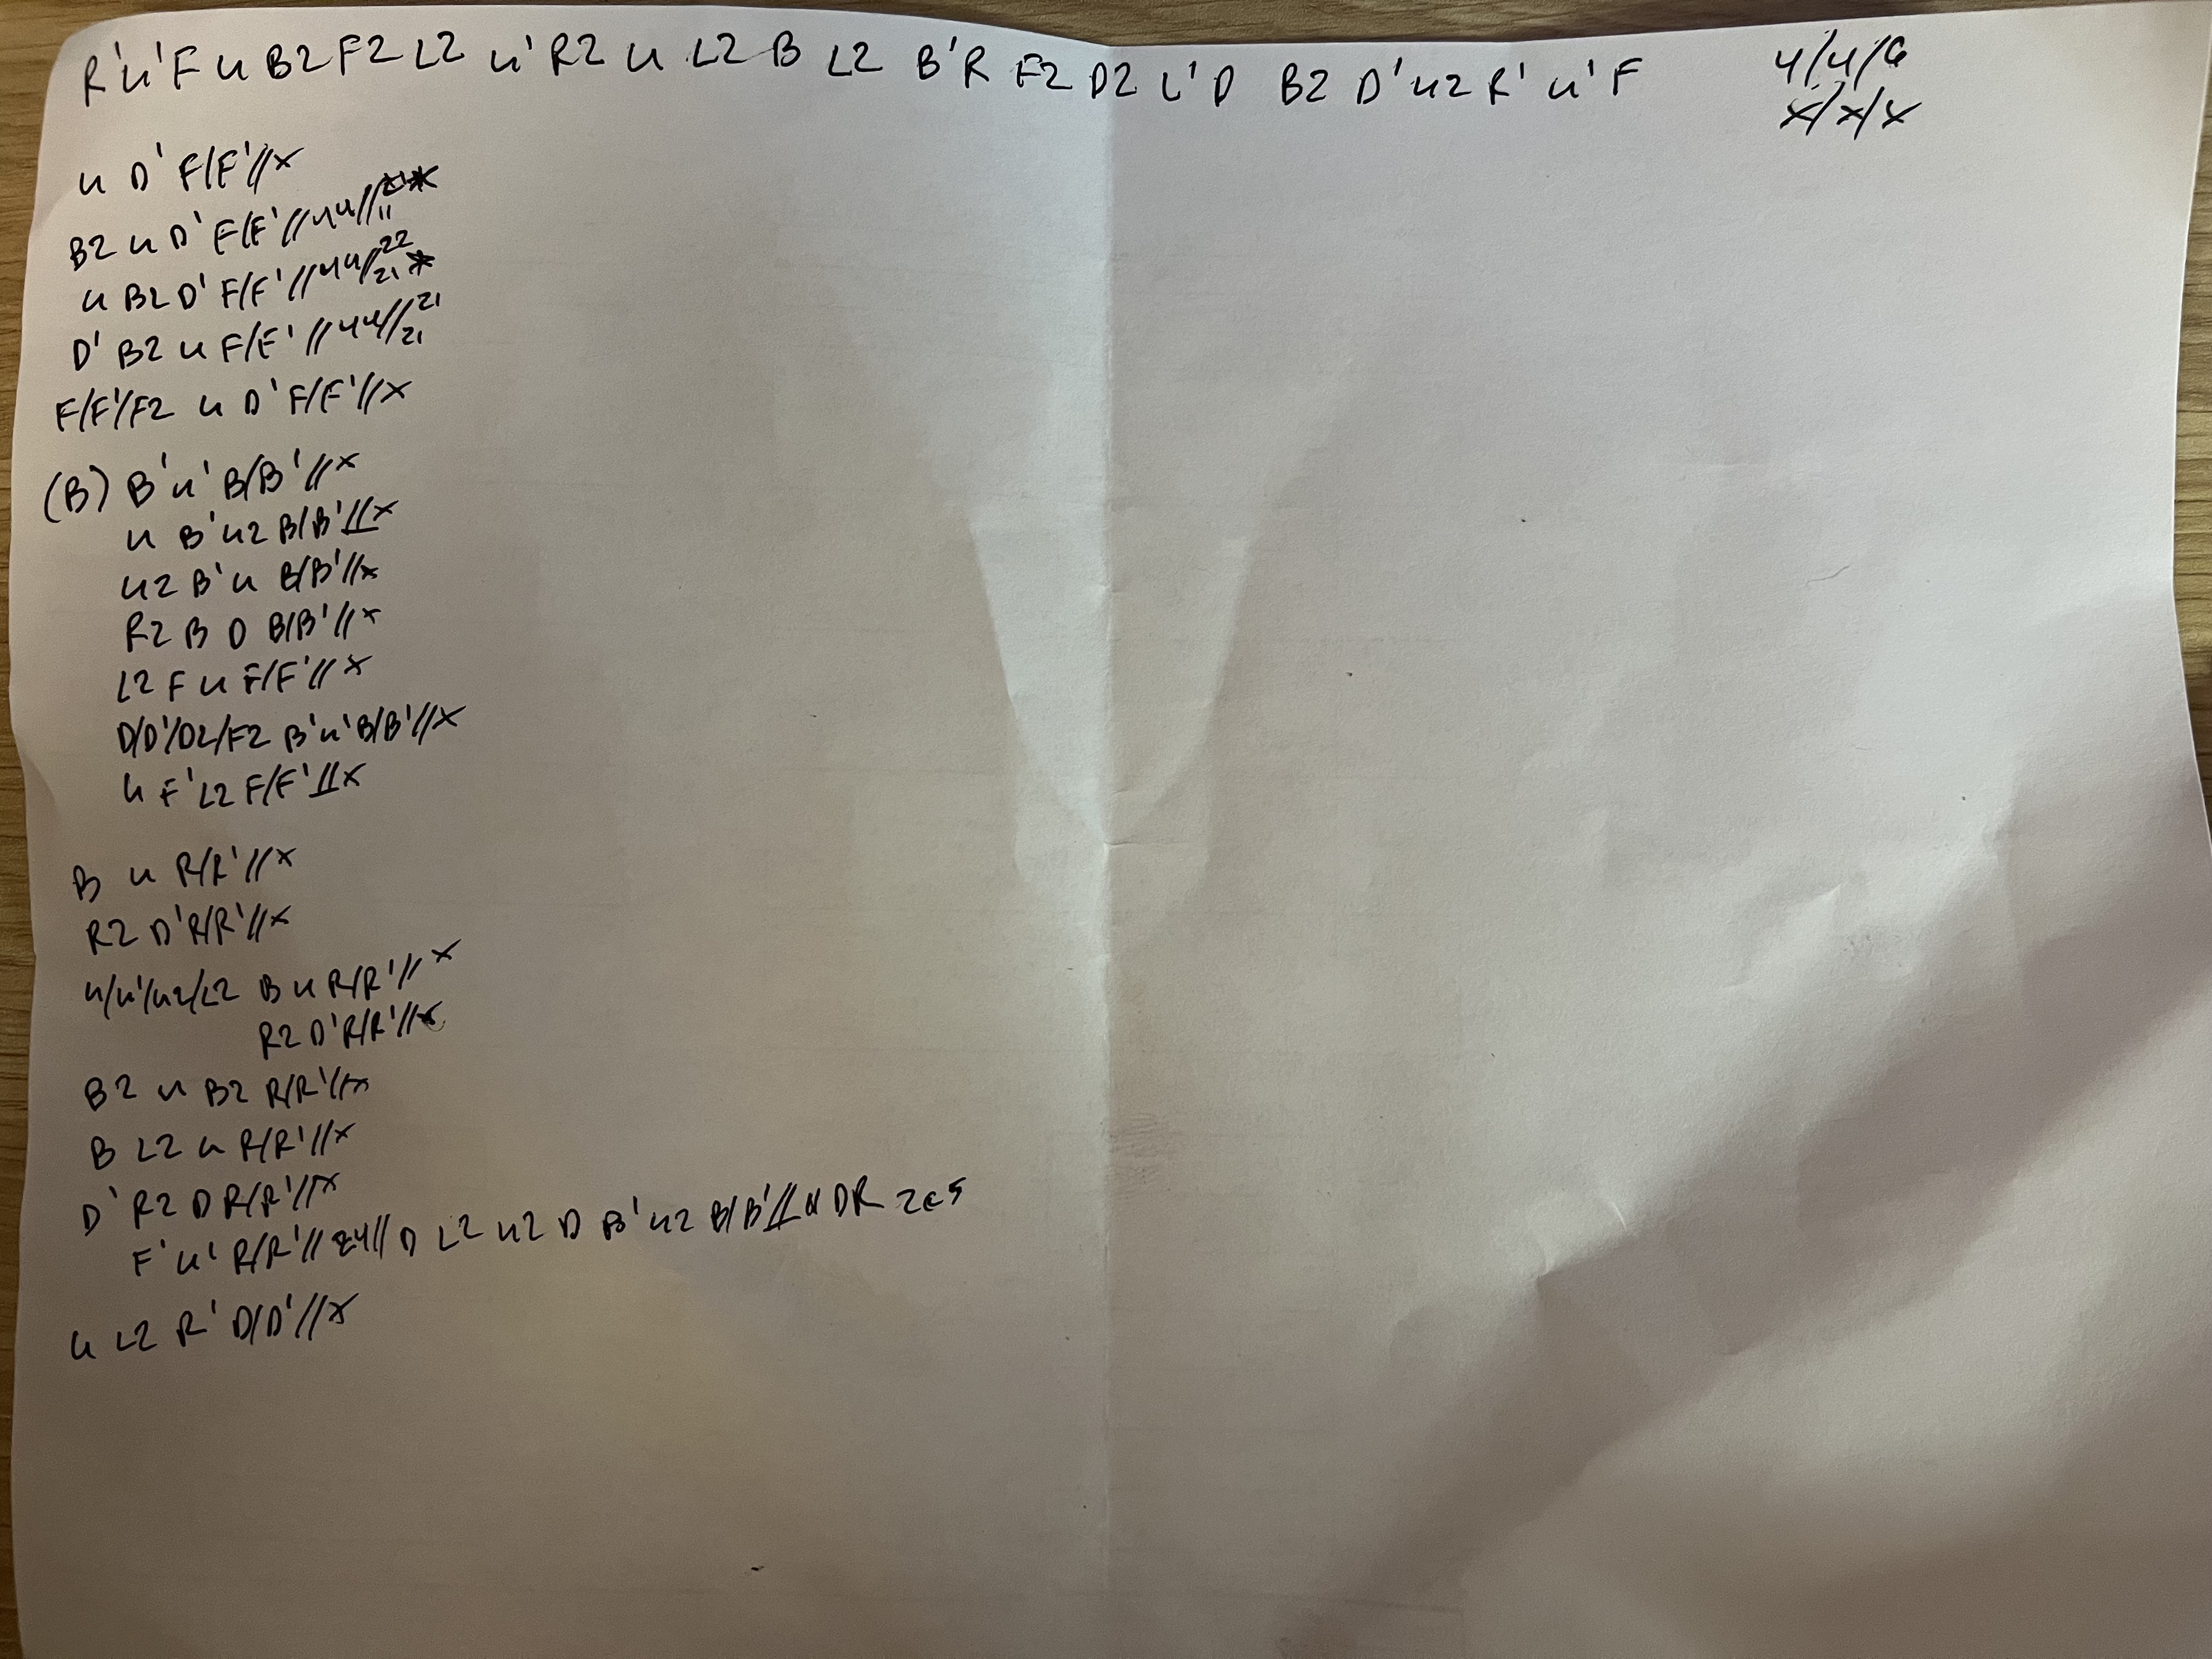 R'u'F u B2 F2 L2 u'R2 u L2 B L2 B'R F2 D2 L'D B2 D'u2 R' u'F 4/4/6
x/x/x
u D' F/F'//x
B2 u D' F/F'//44//11
u B2 D' F/F'//44//22 21*
D' B2 u F/F'//44//21 21
F/F'/F2 u D' F/F'//x
(B) B'u' B/B'//x
u B'u2 B/B'//x
u2 B'u B/B'//x
R2 B D B/B'//x
L2 F u F/F'//x
D/D'/D2/F2 B'u'B/B'//x
u F'L2 F/F'//x
B u R/R'//x
R2 D'R/R'//x
u/u'/u2/L2 B u R/R'//x
R2 D'R/R'//x
B2 u B2 R/R'//x
B L2 u R/R'//x
D' R2 D R/R'//x
F'u' R/R'//24//D L2 u2 D B'u2 B/B'// DR 2e5
u L2 R' D/D'//x